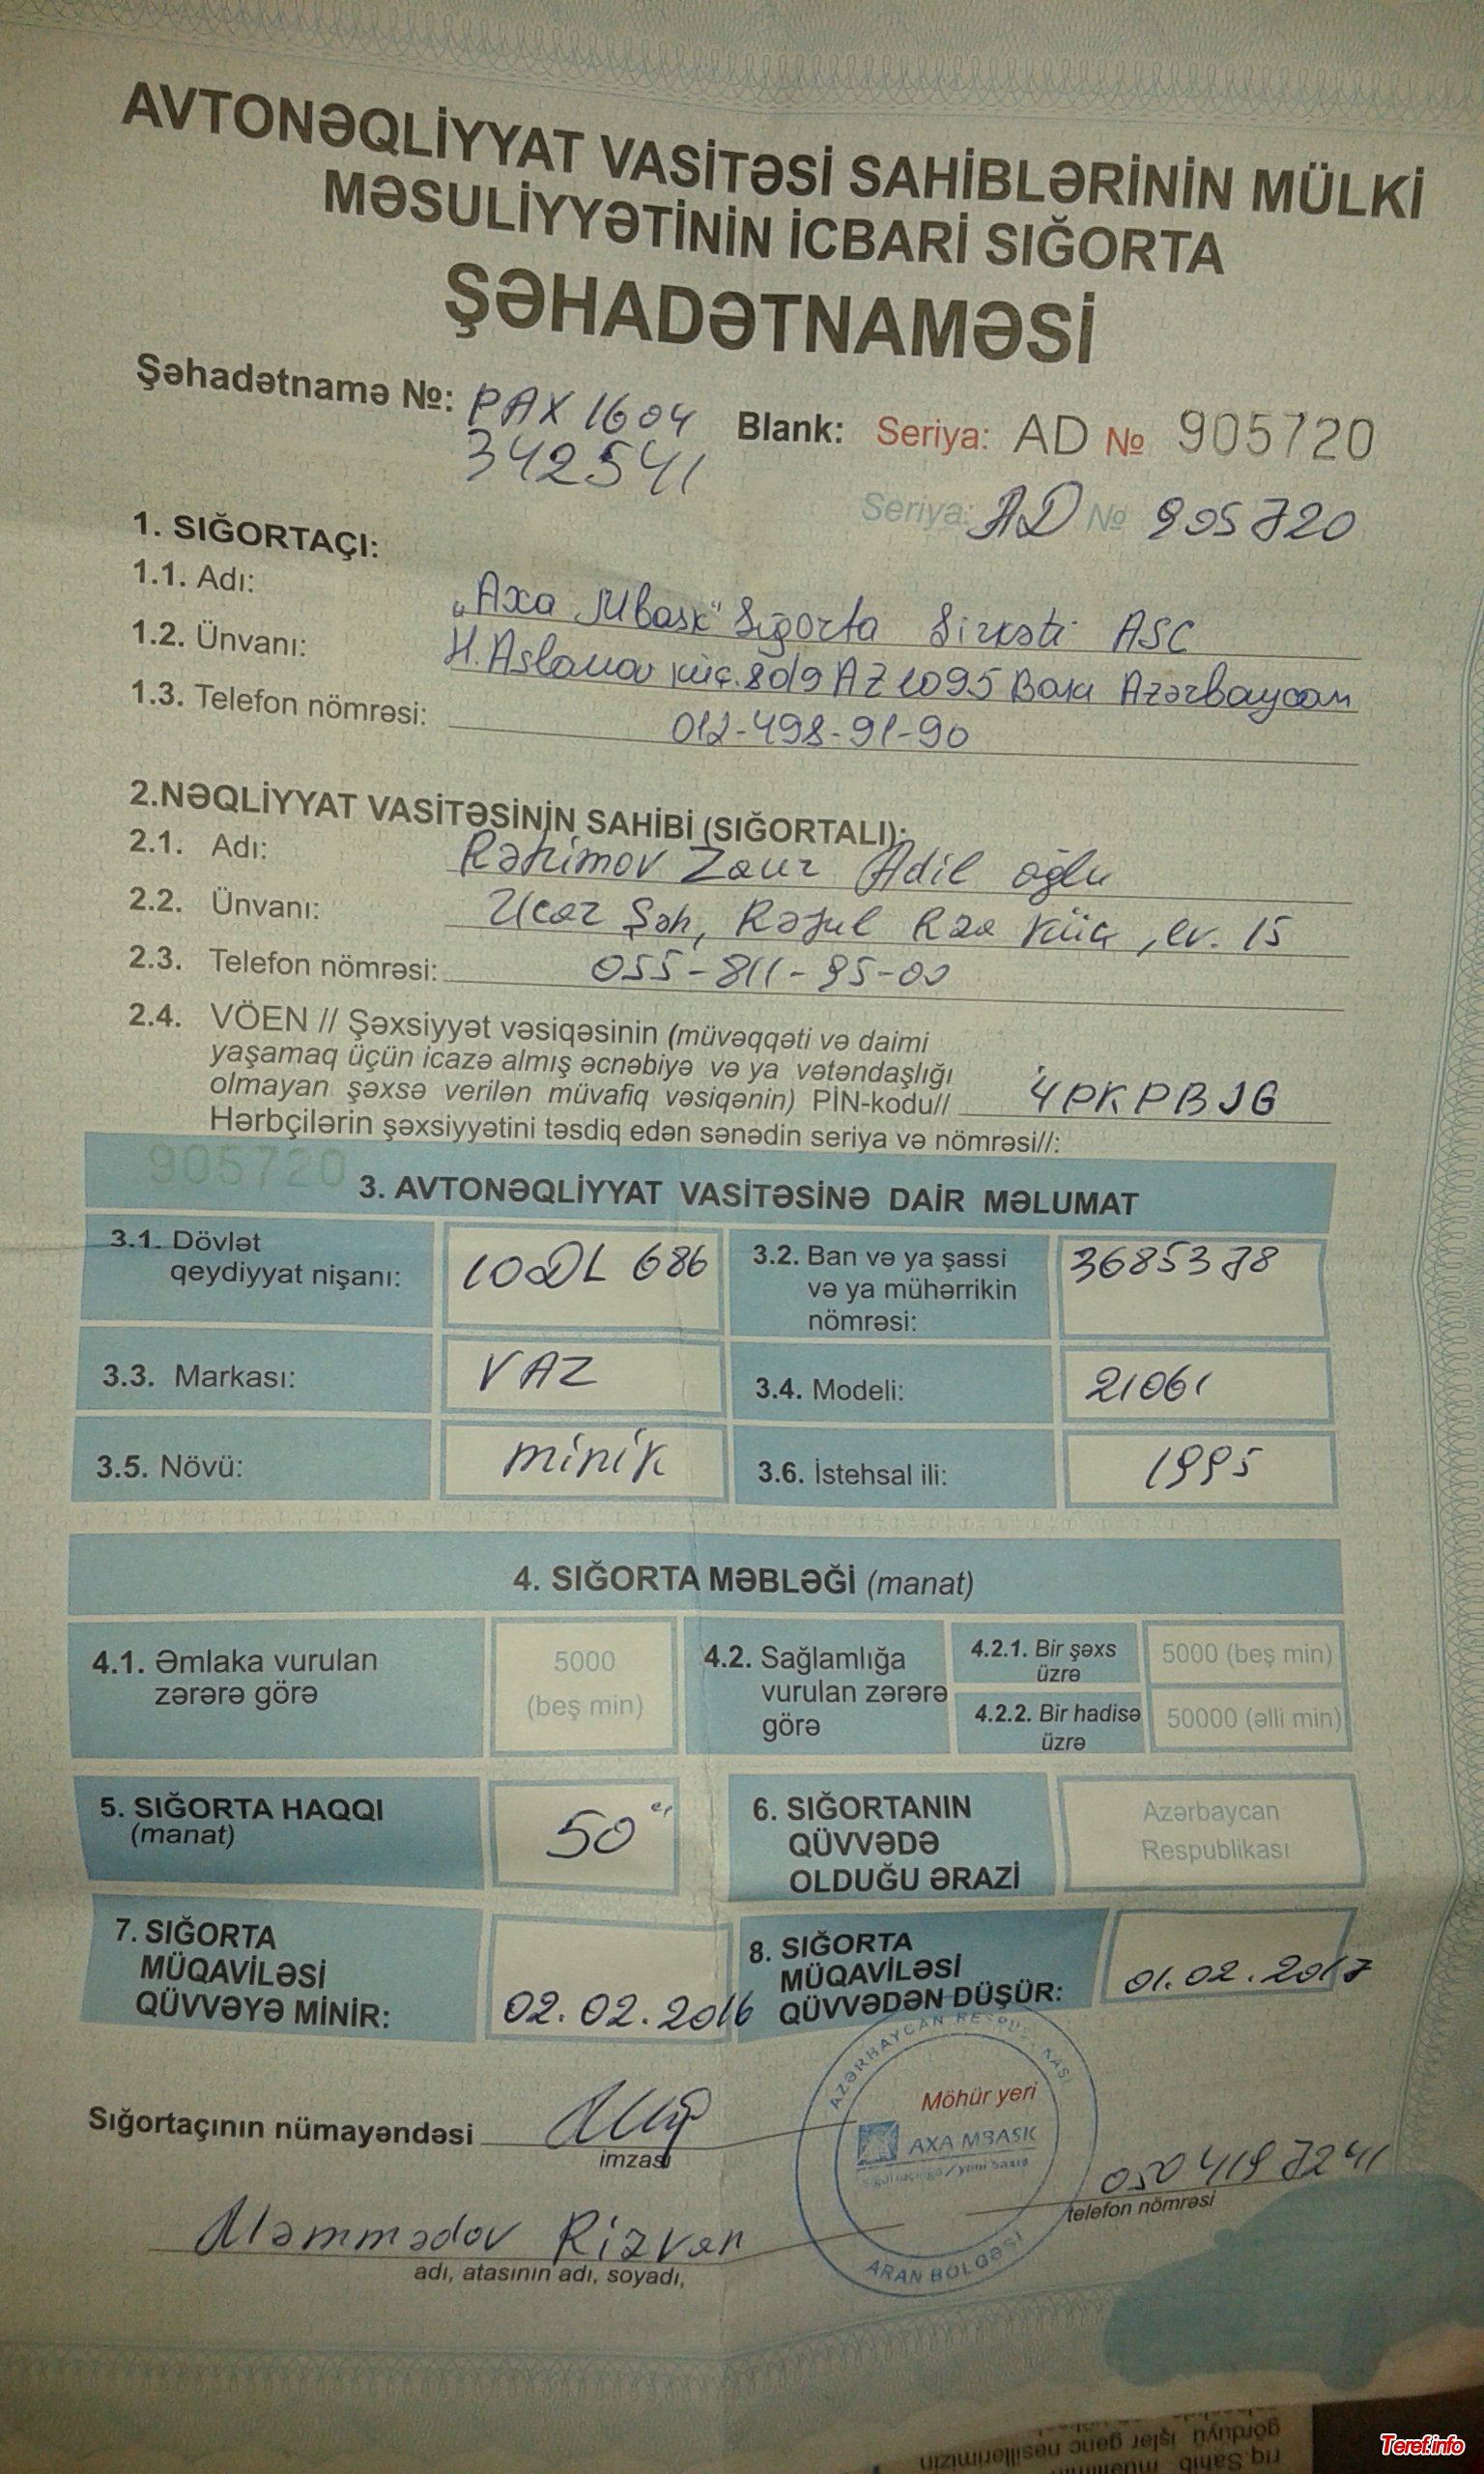 AVTONƏQLİYYAT VASİTƏSİ SAHİBLƏRİNİN MÜLKİ
MƏSULİYYƏTİNİN İCBARİ SIĞORTA
ŞƏHADƏTNAMƏSİ
Şəhadətnamə №: PAX 1604 Blank: Seriya: AD № 905720
342541
Seriya: AD № 905720
1. SIĞORTAÇI:
1.1. Adı: „Axa Mbask" Sığorta Şirkəti ASC
1.2. Ünvanı: H. Aslanov küç. 80/9 AZ1095 Bakı Azərbaycan
1.3. Telefon nömrəsi: 012-498-91-90
2.NƏQLİYYAT VASİTƏSİNİN SAHİBİ (SIĞORTALI):
2.1. Adı: Rəhimov Zaur Adil oğlu
2.2. Ünvanı: Ucar Şəh, Rəsul Rza küç, ev. 15
2.3. Telefon nömrəsi: 055-811-95-00
2.4. VÖEN // Şəxsiyyət vəsiqəsinin (müvəqqəti və daimi
yaşamaq üçün icazə almış əcnəbiyə və ya vətəndaşlığı
olmayan şəxsə verilən müvafiq vəsiqənin) PİN-kodu// 4PKPBJG
Hərbçilərin şəxsiyyətini təsdiq edən sənədin seriya və nömrəsi//:
905720
3. AVTONƏQLİYYAT VASİTƏSİNƏ DAİR MƏLUMAT
3.1. Dövlət qeydiyyat nişanı: 10DL 686
3.2. Ban və ya şassi
və ya mühərrikin
nömrəsi: 3685378
3.3. Markası: VAZ
3.4. Modeli: 21061
3.5. Növü: minik
3.6. İstehsal ili: 1995
4. SIĞORTA MƏBLƏĞİ (manat)
4.1. Əmlaka vurulan
zərərə görə
5000
(beş min)
4.2. Sağlamlığa
vurulan zərərə
görə
4.2.1. Bir şəxs
üzrə
5000 (beş min)
4.2.2. Bir hadisə
üzrə
50000 (əlli min)
5. SIĞORTA HAQQI
(manat)
50
6. SIĞORTANIN
QÜVVƏDƏ
OLDUĞU ƏRAZİ
Azərbaycan
Respublikası
7. SIĞORTA
MÜQAVİLƏSİ
QÜVVƏYƏ MİNİR: 02.02.2016
8. SIĞORTA
MÜQAVİLƏSİ
QÜVVƏDƏN DÜŞÜR: 01.02.2017
AZƏRBAYCAN RESPUBLİKASI
Möhür yeri
Sığortaçının nümayəndəsi
imzası
AXA MBASK
050 419 7241
telefon nömrəsi
Məmmədov Rizvan
adı, atasının adı, soyadı,
ARAN BÖLGƏSİ
Teref.info